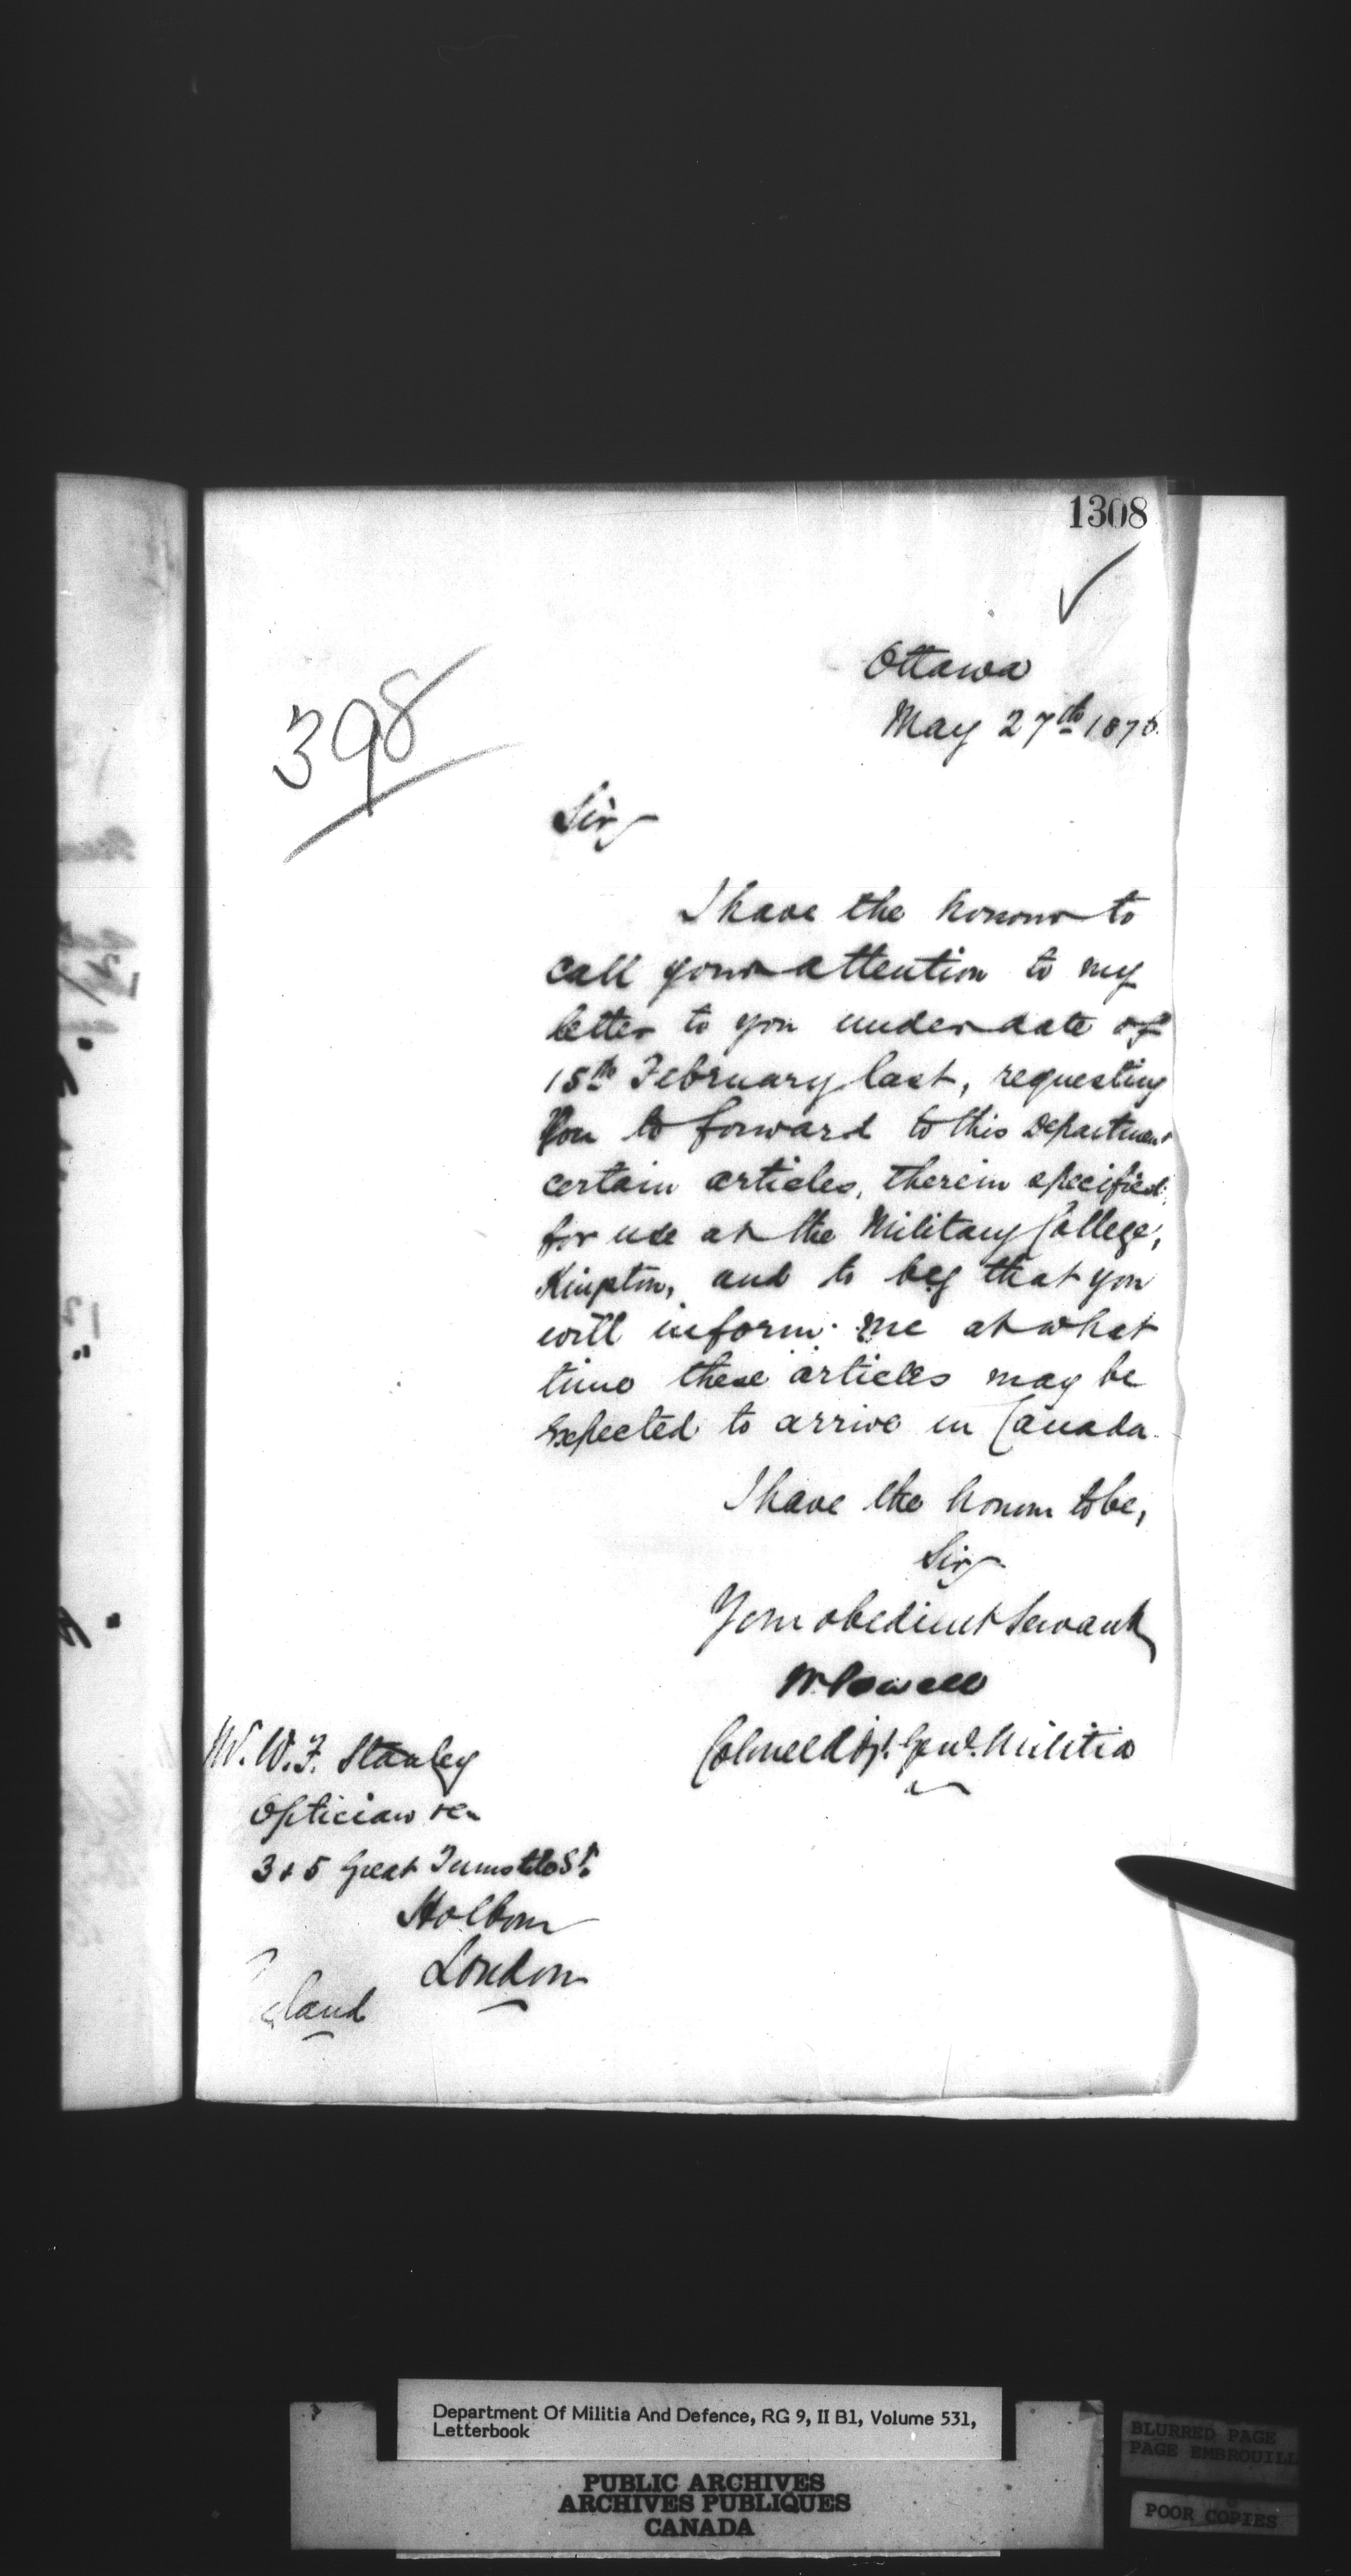 1308
398
Ottawa
May 27th 1876.
Sir,
I have the honour to
call your attention to my
letter to you under date of
15th February last, requesting
You to forward to this Department
certain articles, therein specified
for use at the Military College,
Kingston, and to beg that you
will inform me at what
time these articles may be
expected to arrive in Canada.
I have the honour to be,
Sir,
Your obedient Servant,
W. Powell
Colonel Adjt. Genl. Militia
W. F. Stanley
Optician &c
3 & 5 Great Turnstile St.
Holborn
London
Department Of Militia And Defence, RG 9, II B1, Volume 531,
Letterbook
PUBLIC ARCHIVES
ARCHIVES PUBLIQUES
CANADA
BLURRED PAGE
PAGE EMBROUILL
POOR COPIES